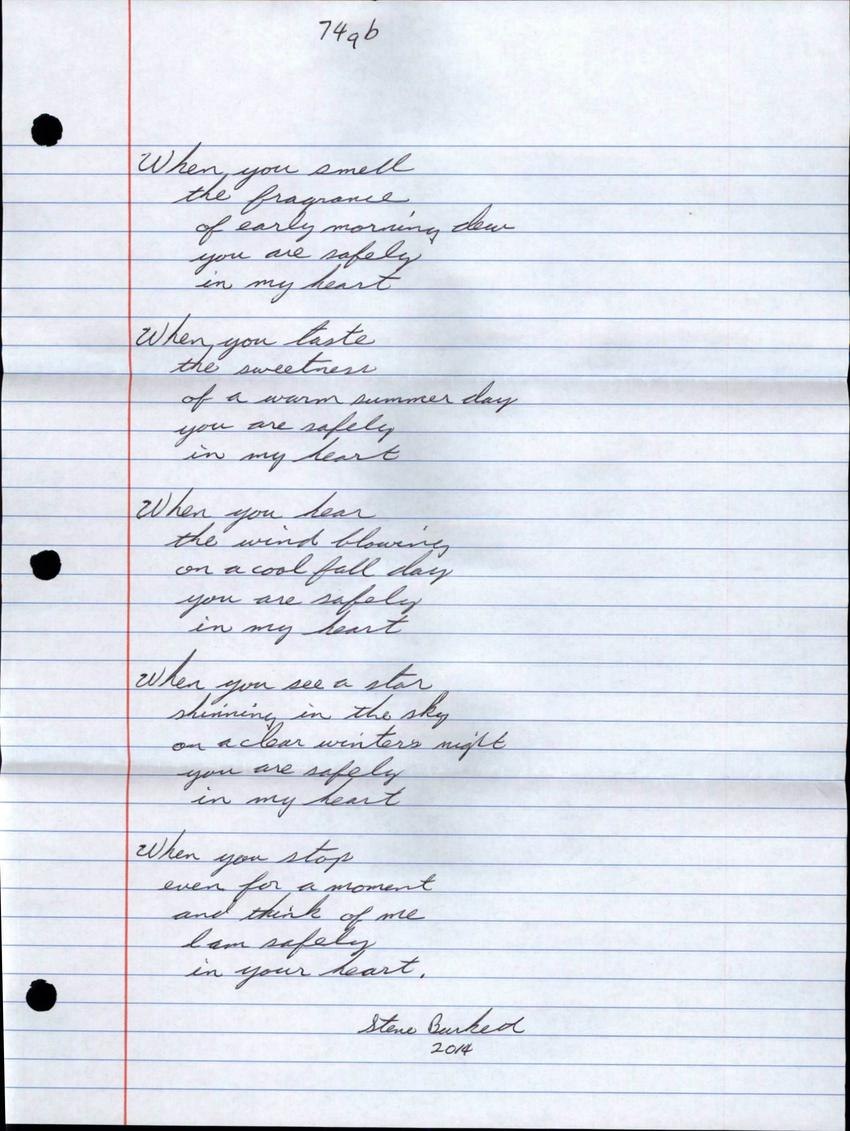 74ab
When you smell
the fragrance
of early morning dew
you are safely
in my heart
When you taste
the sweetness
of a warm summer day
you are safely
in my heart
When you hear
the wind blowing
on a cool fall day
you are safely
in my heart
When you see a star
shinning in the sky
on a clear winters night
you are safely
in my heart
When you stop
even for a moment
and think of me
I am safely
in your heart.
Steve
2014